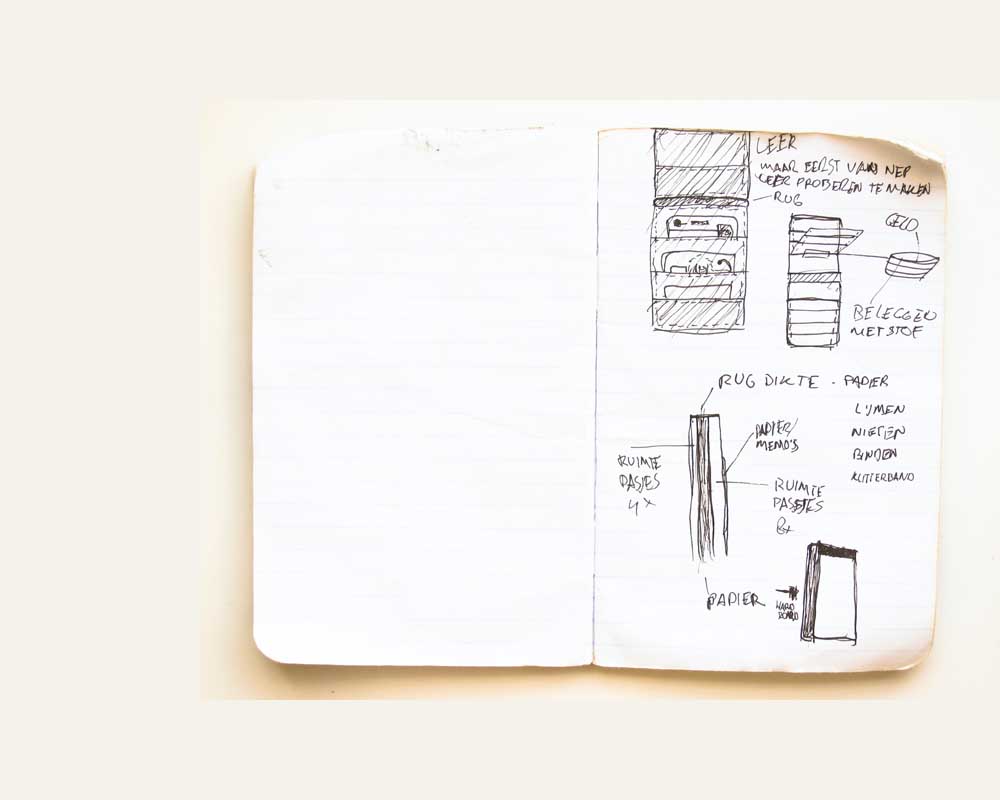 LEER
MAAR EERST VAN NEP
LEER PROBEREN TE MAKEN
RUG
GELD
BELEGGEN
MET STOF
RUG DIKTE - PAPIER
LIJMEN
NIETEN
BINDEN
KLITTERBAND
PAPIER/
MEMO'S
RUIMTE
PASJES
4x
RUIMTE
PASJES
PAPIER
HARD
BOARD